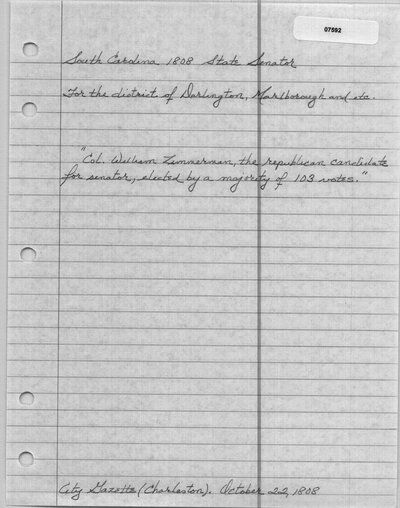 07592
South Carolina 1808 State Senator
For the district of Darlington, Marlborough and etc.
"Col. William Zimmerman, the republican candidate
for senator, elected by a majority of 103 votes."
City Gazette (Charleston). October 22, 1808